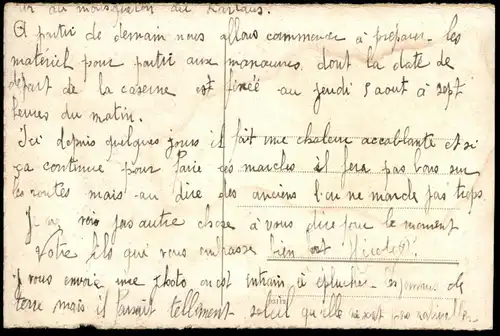 tir au mousqueton au Karlaus.
A partir de demain nous allons commencer à préparer les
matériel pour partir aux manoeuvres dont la date de
départ de la caserne est fixée au jeudi 5 aout à sept
heures du matin.
Ici depuis quelques jours il fait une chaleur accablante et si
ça continue pour faire ces marches il fera pas bons sur
les routes mais au dire des anciens l'on ne marche pas trops.
Je ne vois pas autre chose à vous dire pour le moment
Votre fils qui vous embrasse bien
Je vous envoie une photo ou est entrain à éplucher les pommes de
terre mais il faisait tellement soleil qu'elle n'est pas